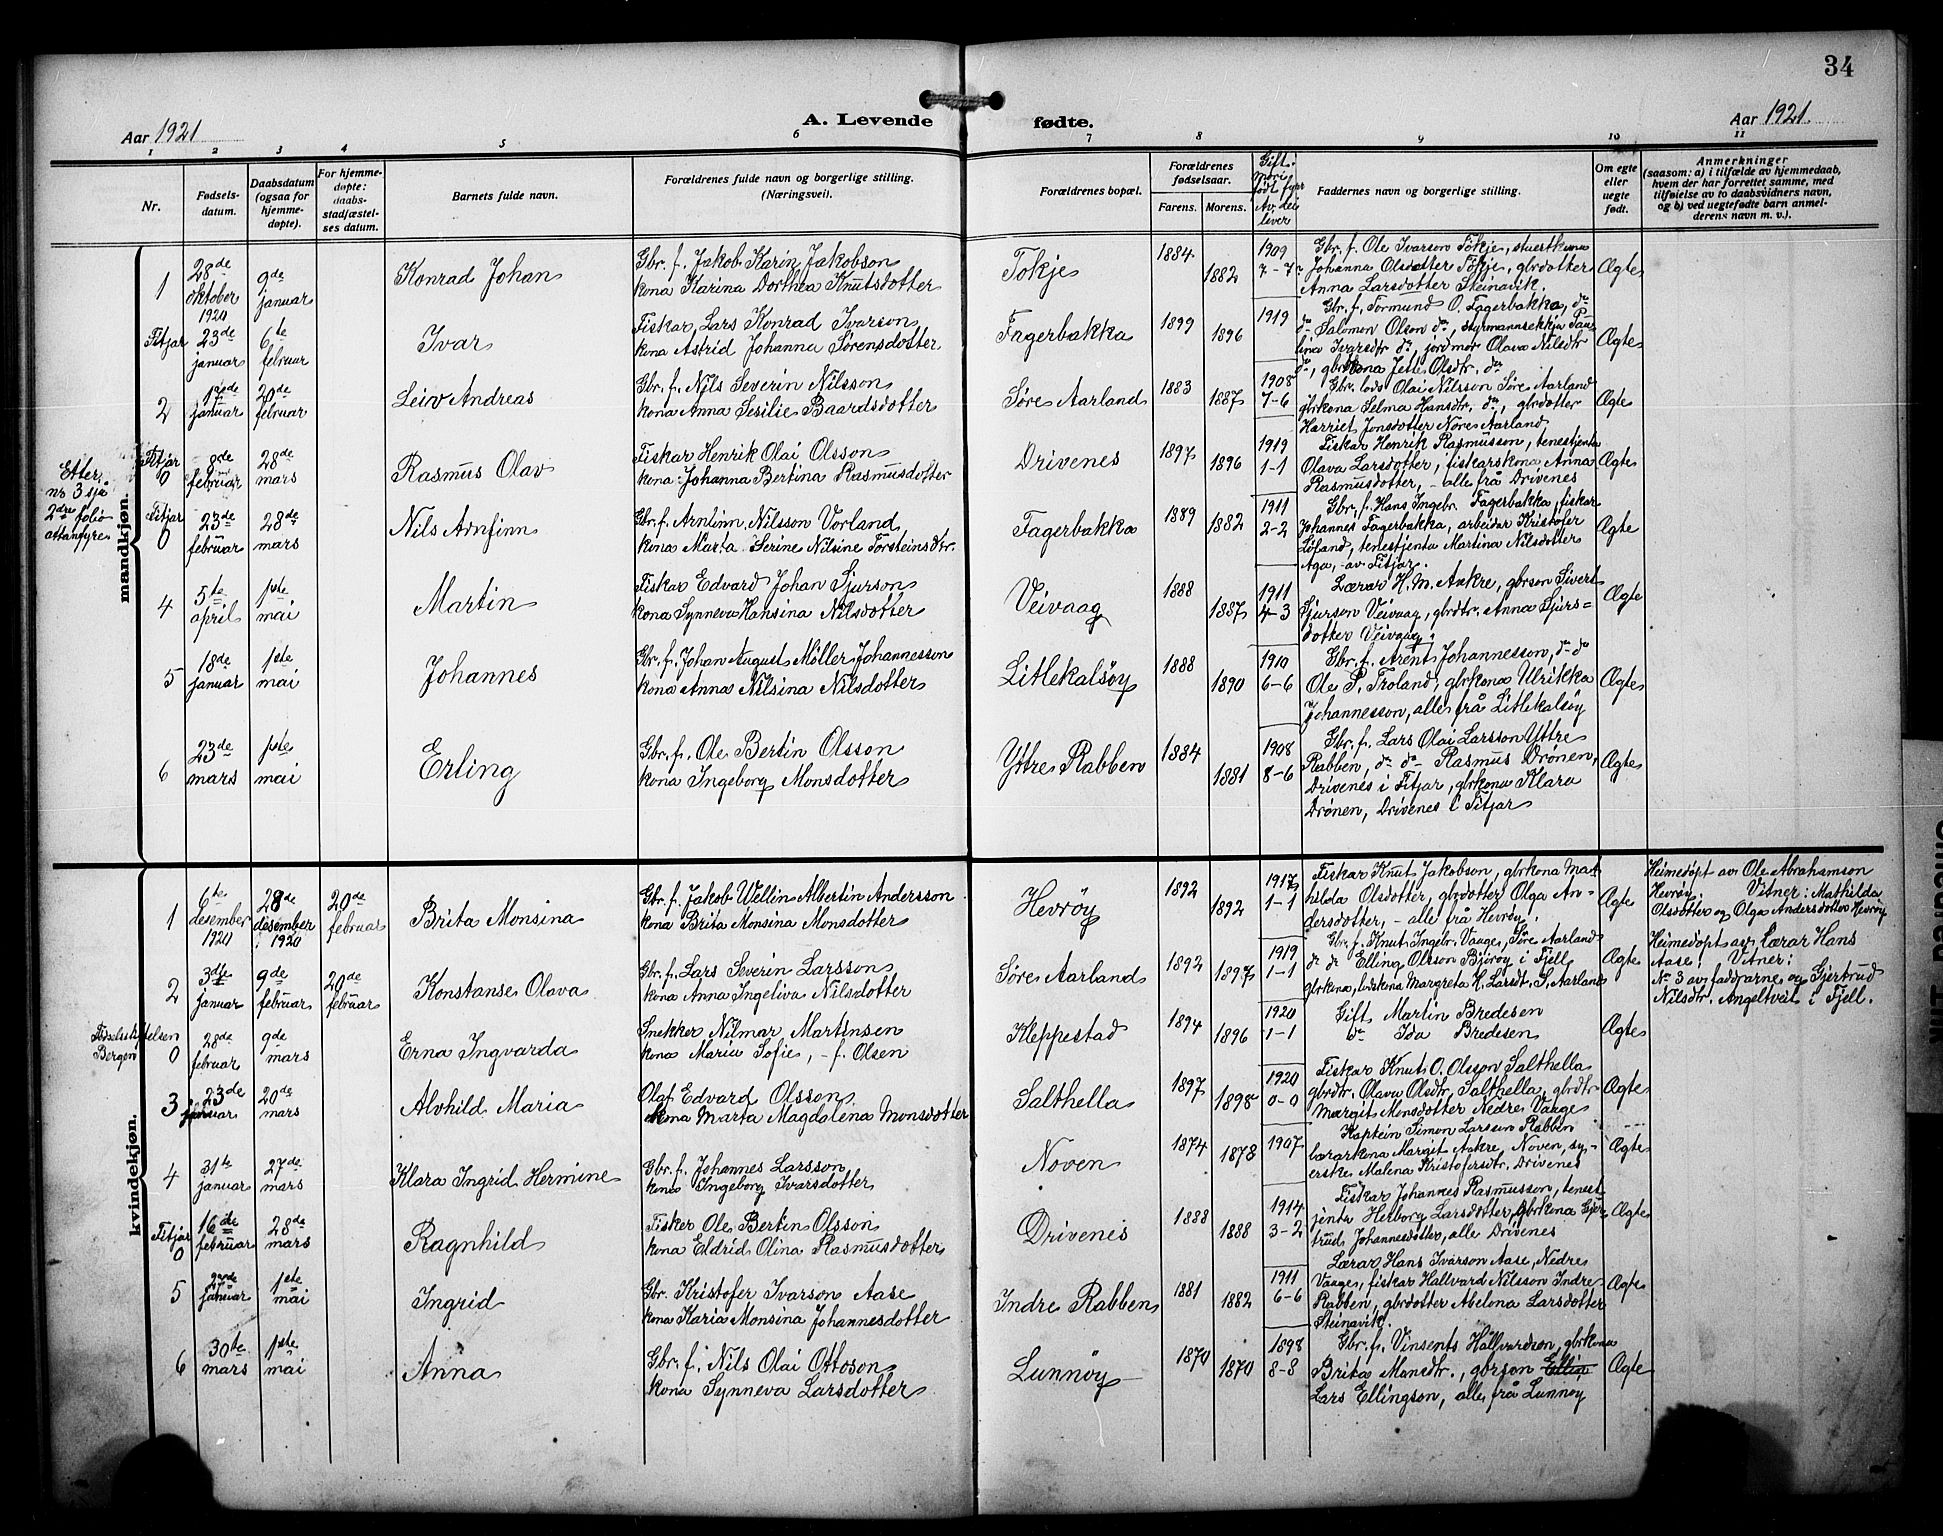 34
Aar 1921
A. Levende fødte.
Aar 1921.
1 2 3 4 5 6 7 8 9 10 11
Nr.
Fødsels-
datum.
Daabsdatum
(ogsaa for
hjemme-
døpte).
For hjemme-
døpte:
daabs-
stadfæstel-
ses datum.
Barnets fulde navn.
Forældrenes fulde navn og borgerlige stilling.
(Næringsvei).
Forældrenes bopæl.
Forældrenes
fødselsaar.
Farens. Morens.
Gift.
Mori
født fyrr
Av dei
liver
Faddernes navn og borgerlige stilling.
Om egte
eller
uegte
født.
Anmerkninger
(saasom: a) i tilfælde av hjemmedaab,
hvem der har forrettet samme, med
tilføielse av to daabsvidners navn,
og b) ved uegtefødte barn anmel-
derens navn m. v.).
mandkjøn.
1
28de
oktober
1920
9de
januar
Konrad Johan
Gbr. f. Jakob Karin Jakobson
kona Karina Dorthea Knutsdotter
Tokje
1884
1882
1909
7-7
Gbr. f. Ole Ivarson Tökje, stuertkona
Johanna Olsdotter Tökje, gbrdotter
Anna Larsdotter Steinavik.
Ægte
Fitjar
23de
januar
6te
februar
Ivar
Fiskar Lars Konrad Ivarson
kona Astrid Johanna Sörensdotter
Fagerbakka
1899
1896
1919
Gbr. f. Tormund O. Fagerbakka, do
do Salomon Olson do, styrmannsekkja Pau-
lina Ivarsdtr do, jordmor Olava Nilsdtr
do, gbrkona Jette Olsdtr. do
Ægte
2
17de
januar
20de
februar
Leiv Andreas
Gbr. f. Nils Severin Nilsson
kona Anna Sesilie Baardsdotter
Søre Aarland
1883
1887
1908
7-6
Gbr. lods Olai Nilsson Søre Aarland
gbrkona Selma Hansdtr. do, gbrdotter
Harriet Jonsdotter Nöre Aarland
Ægte
Etter
nr 3 sjå
2dre folio
attanfyre
Fitjar
0
8de
februar
28de
mars
Rasmus Olav
Fiskar Henrik Olai Olsson
kona: Johanna Bertina Rasmusdotter
Drivenes
1897
1896
1919
1-1
Fiskar Henrik Rasmusson, tenestjenta
Olava Larsdotter, fiskarskona Anna
Rasmusdotter, - alle frå Drivenes
Ægte
Fitjar
0
23de
februar
28de
mars
Nils Arnfinn
Gbr. f. Arnfinn Nilsson Vorland
kona Marta Serine Nilsine Torsteinsdtr.
Fagerbakka
1889
1882
1911
2-2
Gbr. f. Hans Ingebr. Fagerbakka, fiskar
Johannes Fagerbakka, arbeidar Kristofer
Löfand, tenestjenta Martina Nilsdotter
Aga, - av Fitjar.
Ægte
4
5te
april
1ste
mai
Martin
Fiskar Edvard Johan Sjurson
kona Synneva Hansina Nilsdotter
Veivaag
1888
1887
1911
4-3
Lærar H. M. Aakre, gbrson Sivert
Sjurson Veivaag, gbrdtr. Anna Sjurs-
dotter Veivaag.
Ægte
5
18de
januar
1ste
mai
Johannes
Gbr. f. Johan August Möller Johannesson
kona Anna Nilsina Nilsdotter
Litlekalsöy
1888
1890
1910
6-6
Gbr. f. Arent Johannesson, do do
Ole P. Troland, gbrkona Ulrikka
Johannesson, alle frå Litlekalsöy
Ægte
6
23de
mars
1ste
mai
Erling
Gbr. f. Ole Bertin Olsson
kona Ingeborg Monsdotter
Yttre Rabben
1884
1881
1908
8-6
Gbr. f. Lars Olai Larsson Yttre
Rabben, do do Rasmus Drönen,
Drivenes i Fitjar, gbrkona Klara
Drönen, Drivenes i Fitjar
Ægte
kvindekjøn.
1
6te
desember
1920
28de
desember
1920
20de
februar
Brita Monsina
Gbr. f. Jakob Wellin Albertin Andersson
kona Brita Monsina Monsdotter
Hevröy
1892
1892
1917
1-1
Fiskar Knut Jakobson, gbrkona Mat-
hilda Olsdotter, gbrdotter Olga An-
dersdotter, - alle frå Hevröy.
Ægte
Heimedöpt av Ole Abrahamson
Hevröy. Vitner: Mathilda
Olsdotter og Olga Andersdotter Hevröy
2
3dte
januar
9de
februar
20de
februar
Konstanse Olava
Gbr. f. Lars Severin Larsson
kona Anna Ingeliva Nilsdotter
Søre Aarland
1892
1897
1919
1-1
Gbr. f. Knut Ingebr. Vaage, Søre Aarland
do do Elling Olsson Björöy i Fjell
gbrkona, lodskona Margreta H. Larsdt. S. Aarland
Ægte
Heimedöpt av Lærar Hans
Aase. Vitner:
No 3 av faddrarne, og Gjertrud
Nilsdtr. Angeltveit i Fjell.
Bergen
0
28de
februar
9de
mars
Erna Ingvarda
Snekker Nilmar Martinsen
kona Maria Sofie, - f. Olsen
Kleppestad
1894
1896
1920
1-1
Gift Martin Bredesen
do Ida Bredesen
Ægte
3
23de
januar
20de
mars
Alvhild Maria
Olaf Edvard Olsson
kona Marta Magdalena Monsdotter
Salthella
1897
1898
1920
0-0
Fiskar Knut O. Olsson Salthella
gbrdtr. Olava Olsdtr. Salthella, gbrdtr
Margit Monsdotter Nedre Vaage
Ægte
4
31te
januar
27de
mars
Klara Ingrid Hermine
Gbr. f. Johannes Larsson
kona Ingeborg Ivarsdotter
Noven
1874
1878
1907
Kaptein Simon Larsson Rabben
lærarkona Margit Aakre, Noven, sy-
erske Malena Kristofersdtr. Drivenes
Ægte
Fitjar
0
16de
februar
28de
mars
Ragnhild
Fisker Ole Bertin Olsson
kona Eldrid Olina Rasmusdotter
Drivenes
1888
1888
1914
3-2
Fiskar Johannes Rasmusson, tenest-
jenta Herborg Larsdotter, gbrkona Gjer-
trud Johannesdotter, alle Drivenes
Ægte
5
januar
1ste
mai
Ingrid
Gbr. Kristofer Ivarson Aase
kona Karia Monsina Johannesdotter
Indre Rabben
1881
1882
1911
6-6
Lærar Hans Ivarson Aase, Nedre
Vaage, fiskar Hallvard Nilsson Indre
Rabben, gbrdotter Abelona Larsdotter
Steinavik.
Ægte
6
30te
mars
1ste
mai
Anna
Gbr. f. Nils Olai Ottoson
kona Synneva Larsdotter
Lunnöy
1870
1870
1898
8-8
Gbr. f. Vinsents Hallvardson, gbrkona
Brita Monsdtr., gbrson Ellin
Lars Ellingson, alle frå Lunnöy
Ægte